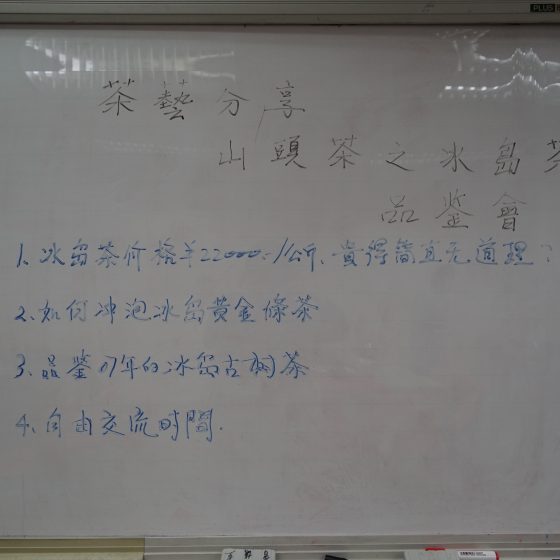 茶藝分享
山頭茶之冰島茶
品鉴會
1、冰島茶价格¥22000-/公斤、貴得簡直无道理?
2、如何冲泡冰島黃金條茶
3、品鉴07年的冰島古树茶
4、自由交流時間.
PLUS